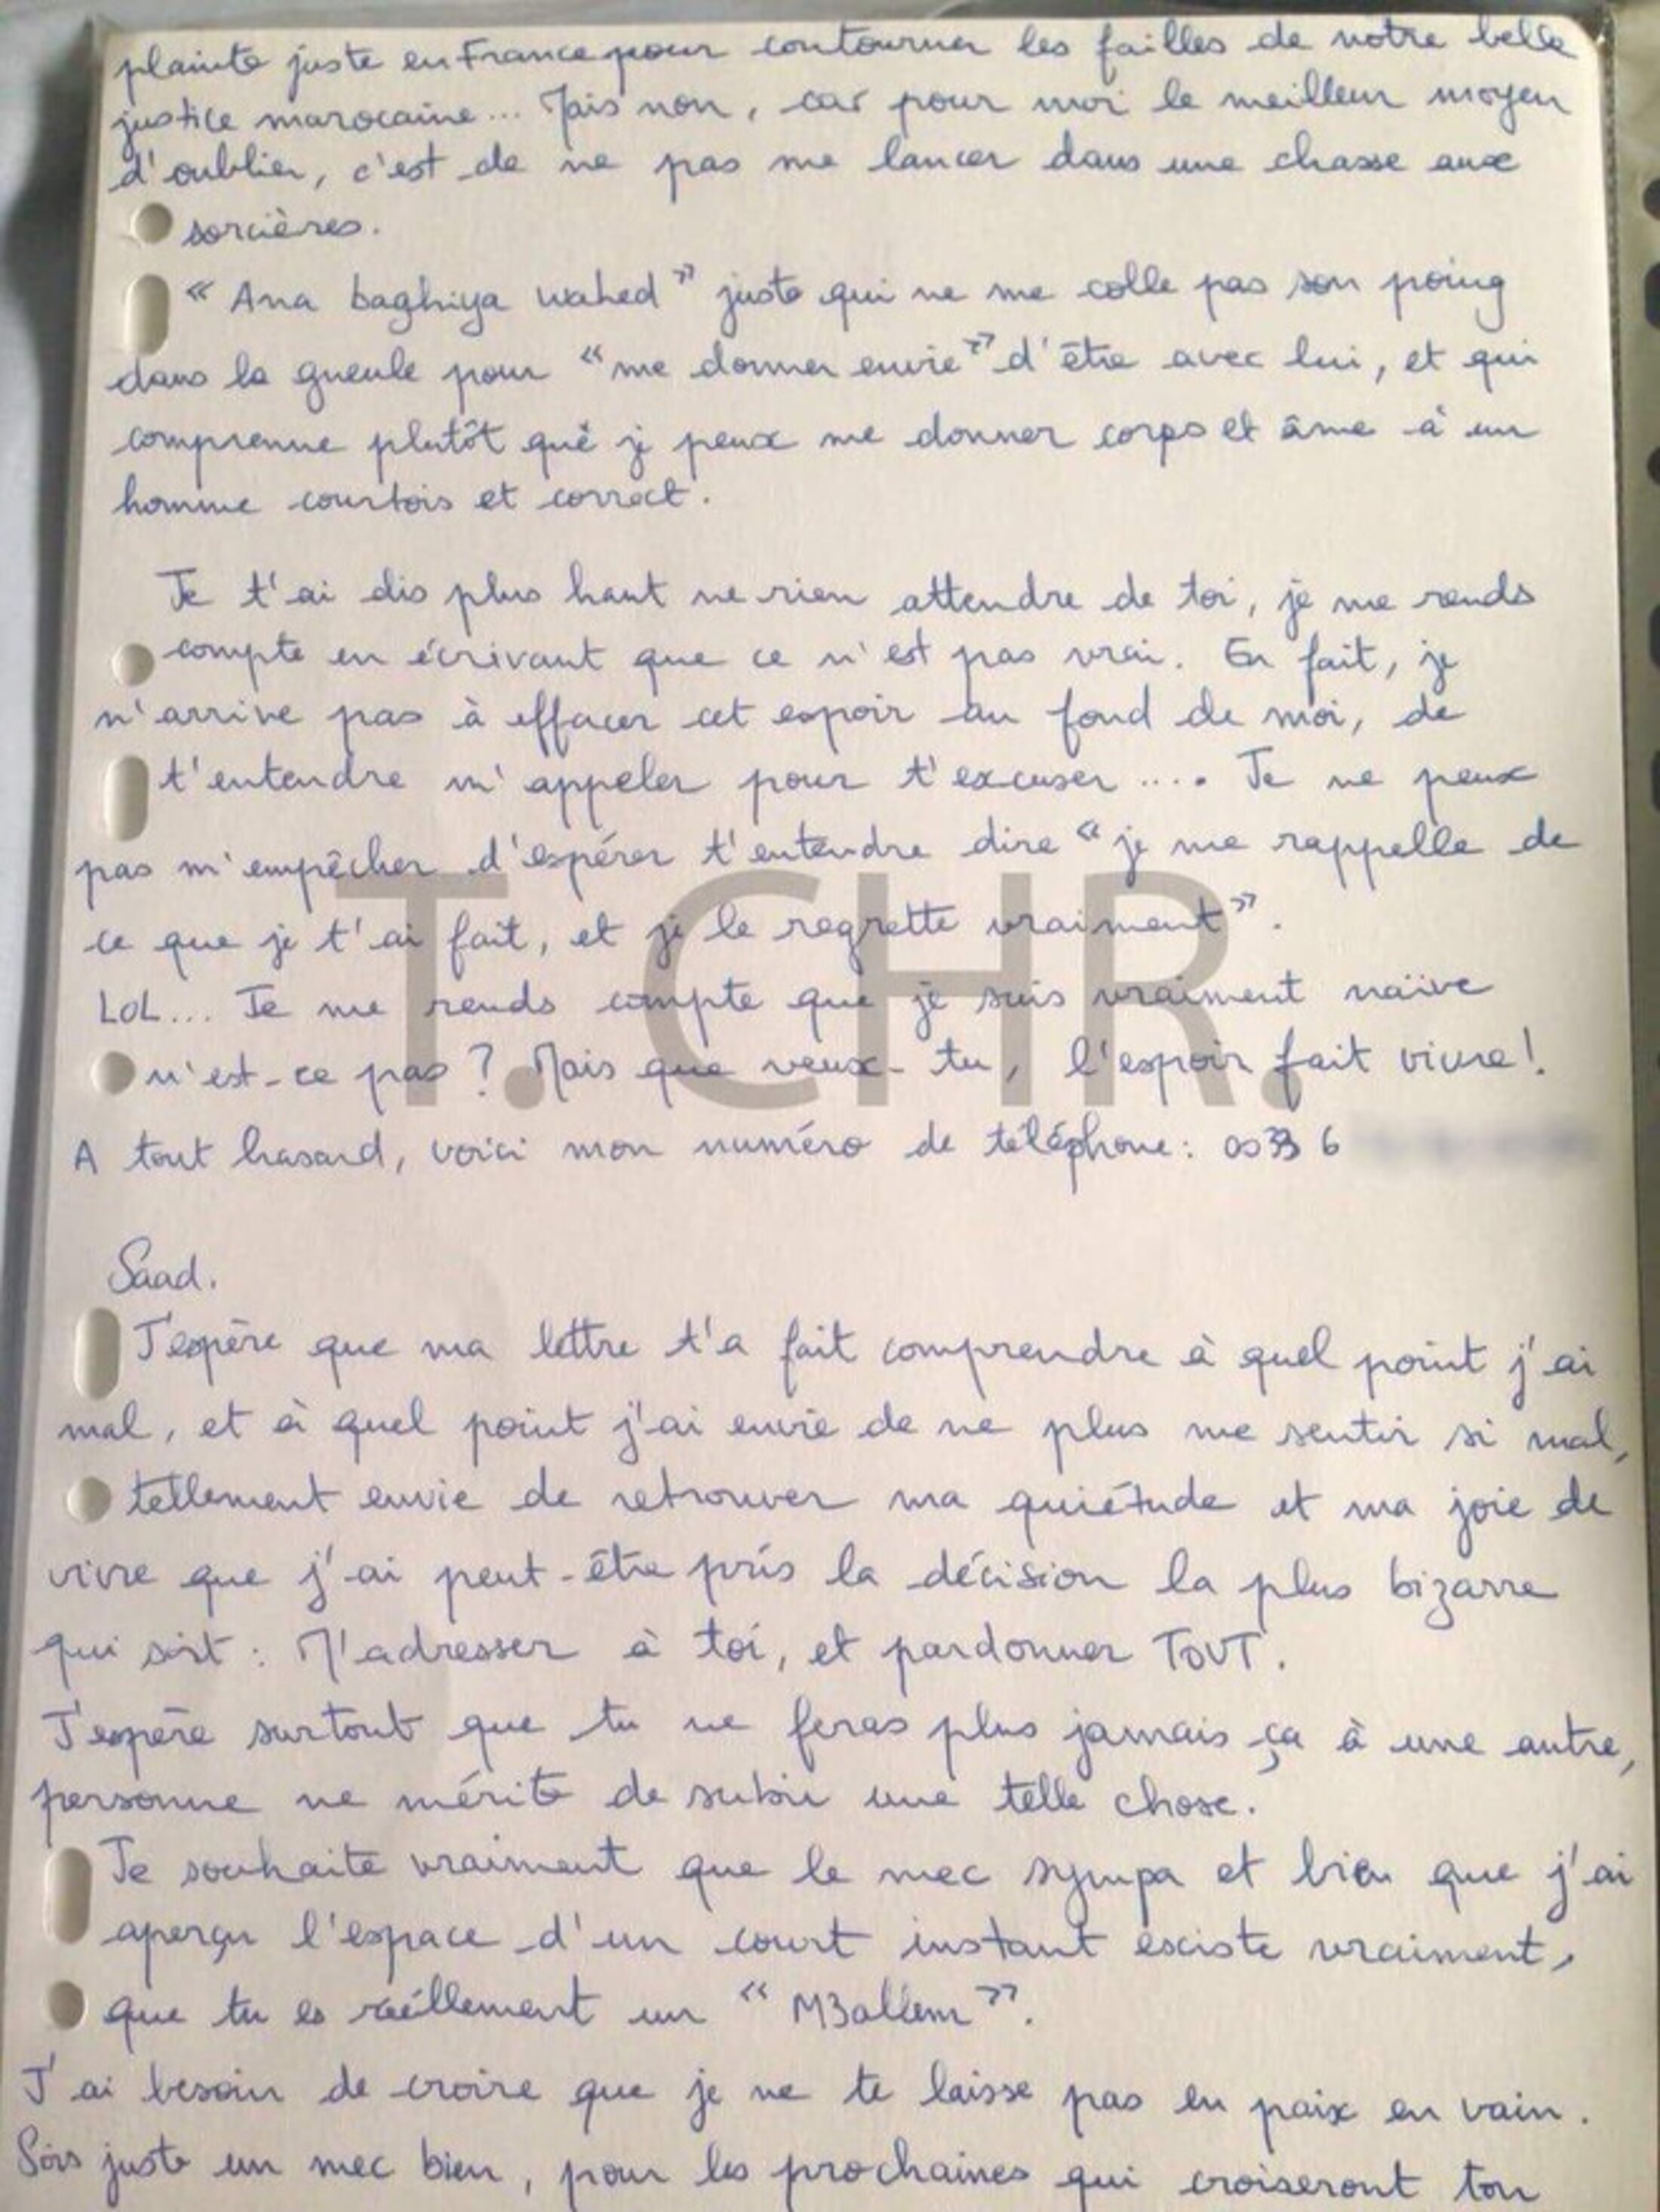 plainte juste en France pour contourner les failles de notre belle
justice marocaine... Mais non, car pour moi le meilleur moyen
d'oublier, c'est de ne pas me lancer dans une chasse aux
sorcières.
“ Ana baghiya wahed ” juste qui ne me colle pas son poing
dans la gueule pour “ me donner envie ” d'être avec lui, et qui
comprenne plutôt que je peux me donner corps et âme à un
homme courtois et correct.
Je t'ai dis plus haut ne rien attendre de toi, je me rends
compte en écrivant que ce n'est pas vrai. En fait, je
n'arrive pas à effacer cet espoir au fond de moi, de
t'entendre m'appeler pour t'excuser .... Je ne peux
pas m'empêcher d'espérer t'entendre dire “ je me rappelle de
ce que je t'ai fait, et je le regrette vraiment ”.
LOL... Je me rends compte que je suis vraiment naïve
n'est-ce pas ? Mais que veux-tu, l'espoir fait vivre !
A tout hasard, voici mon numéro de téléphone : 0033 6
T. CHR.
Saad.
J'espère que ma lettre t'a fait comprendre à quel point j'ai
mal, et à quel point j'ai envie de ne plus me sentir si mal,
tellement envie de retrouver ma quiétude et ma joie de
vivre que j'ai peut-être pris la décision la plus bizarre
qui soit : M'adresser à toi, et pardonner TOUT.
J'espère surtout que tu ne feras plus jamais ça à une autre,
personne ne mérite de subir une telle chose.
Je souhaite vraiment que le mec sympa et bien que j'ai
aperçu l'espace d'un court instant existe vraiment,
que tu es réellement un “ M3allem ”.
J'ai besoin de croire que je ne te laisse pas en paix en vain.
Sois juste un mec bien, pour les prochaines qui croiseront ton